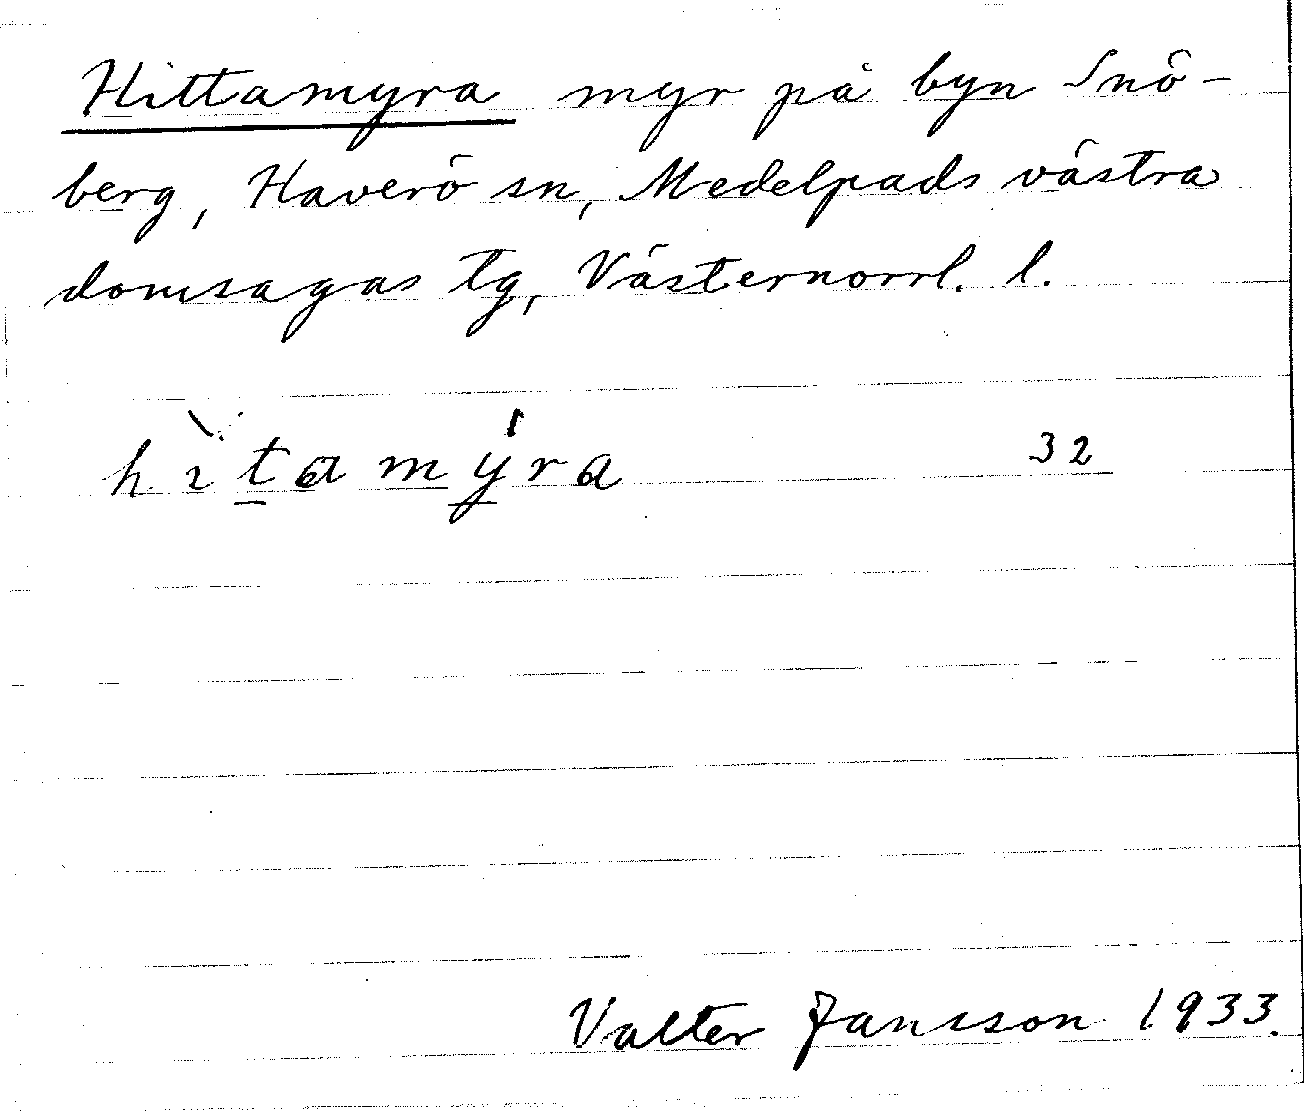 Hittamyra myr på byn Snö-
berg, Haverö sn, Medelpads västra
domsagas tg, Västernorrl. l.
hìtamýra 32
Valter Jansson 1933.